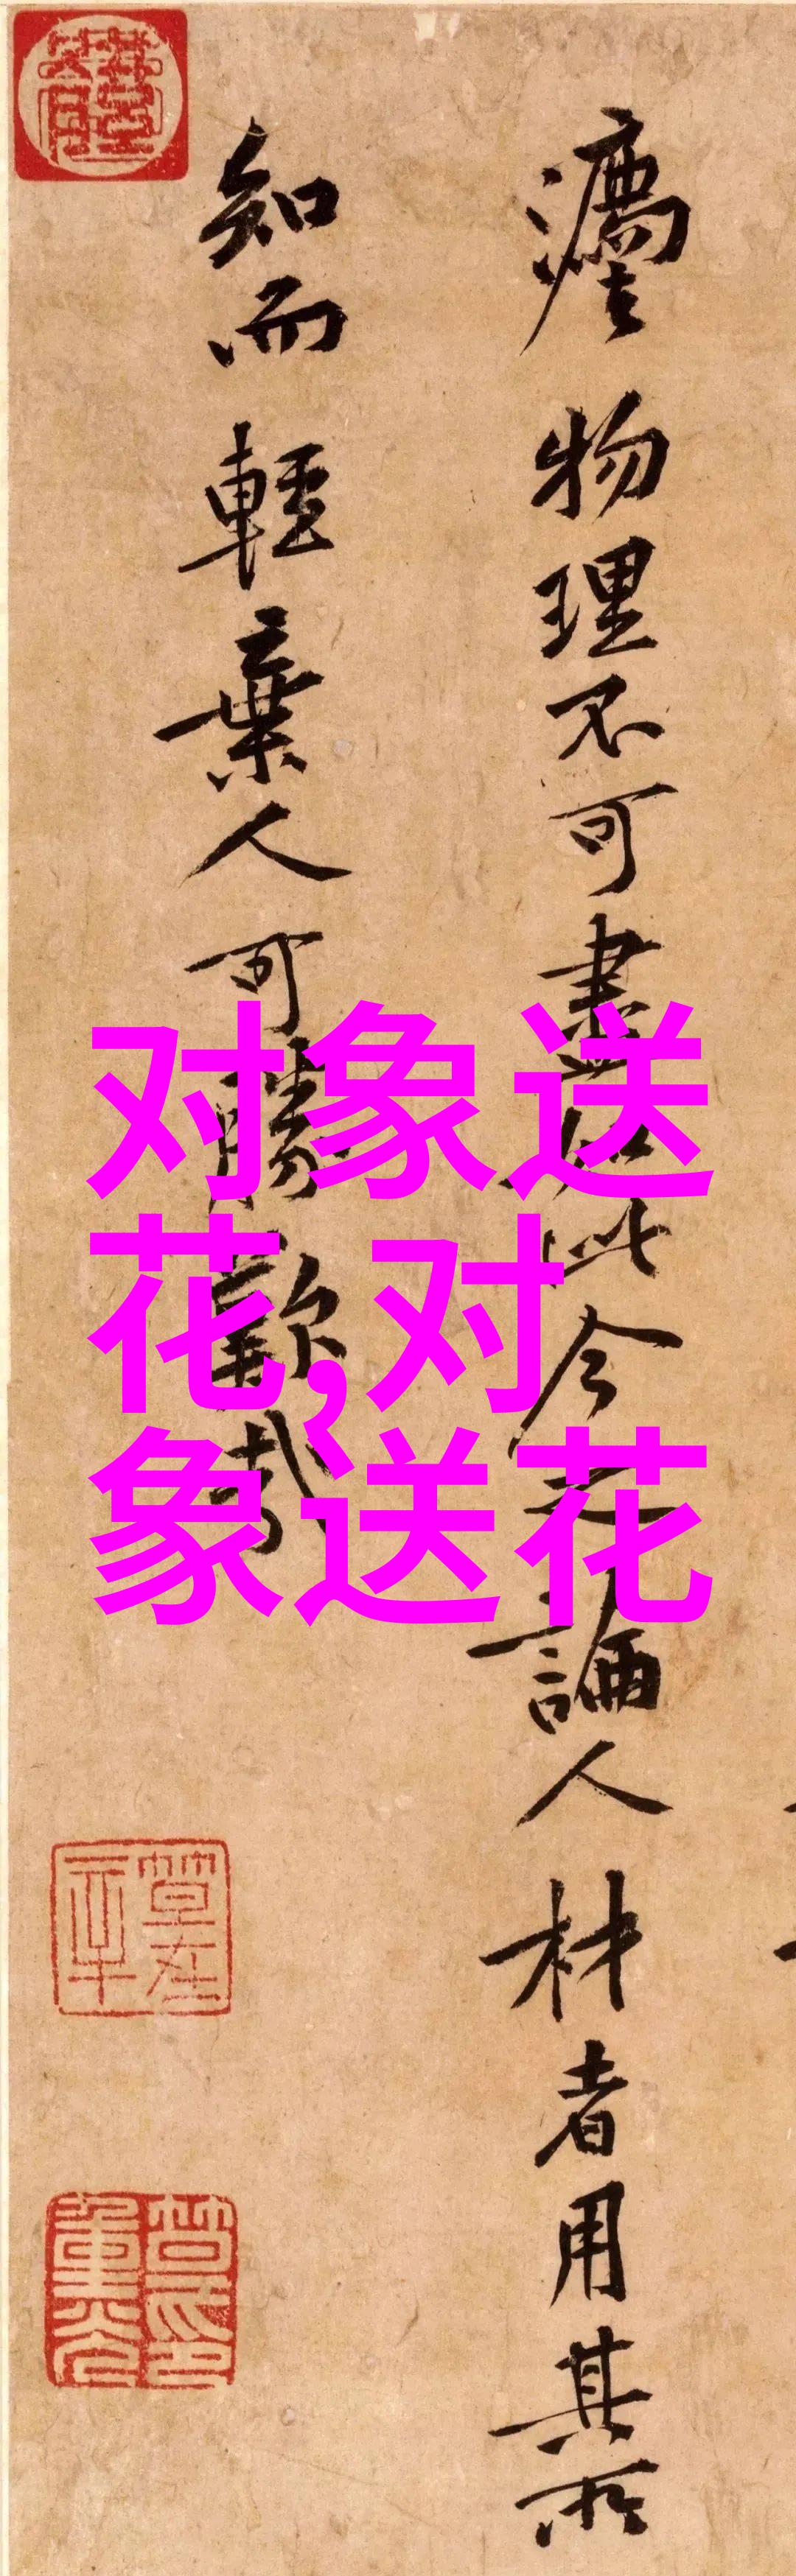 物理不可盡如此今之論人材者用其所
知而輕棄人可勝歎哉
对象送
花,对
象送花